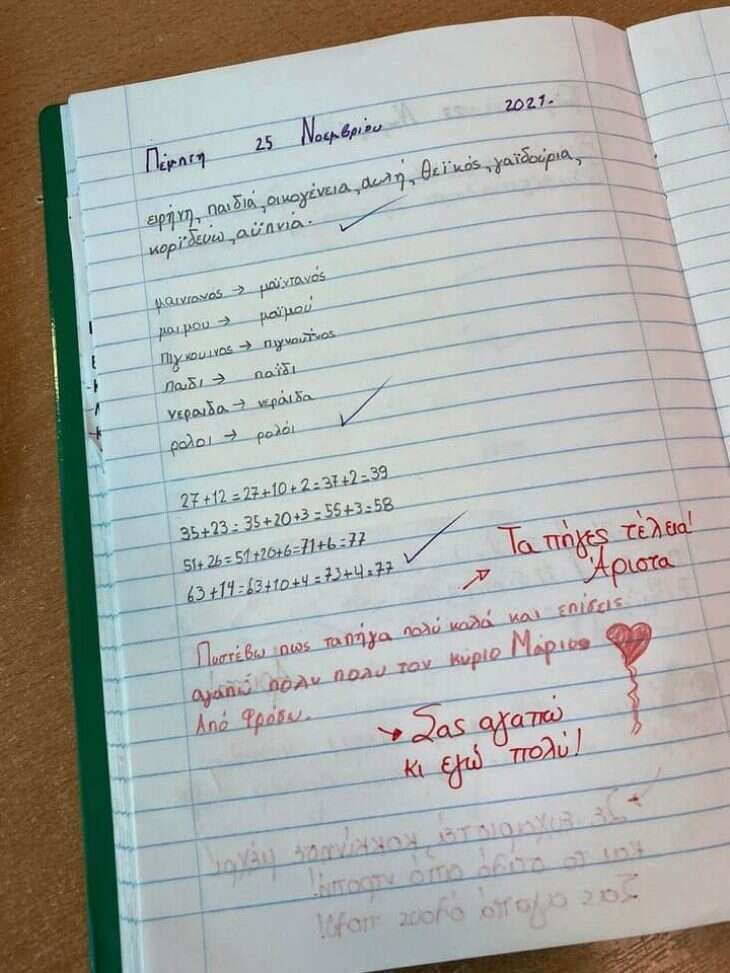 Πέμπτη 25 Νοεμβρίου 2021.
ειρήνη, παιδιά, οικογένεια, αυλή, θεϊκός, γαϊδούρια,
κοροϊδεύω, αϋπνία.
μαιντανός → μαϊντανός
μαιμου → μαϊμού
πιγκουινος → πιγκουίνος
παιδι → παϊδι
νεραιδα → νεράιδα
ρολοι → ρολόι
27+12=27+10+2=37+2=39
35+23=35+20+3=55+3=58
51+26=51+20+6=71+6=77
63+14=63+10+4=73+4=77
→ Τα πήγες τέλεια!
Άριστα
Πιστέβω πως τα πήγα πολύ καλά και επίσεις
αγαπώ πολυ πολυ τον κύριο Μάριο
Από Φρόσω.
→ Σας αγαπώ
κι εγώ πολύ!
Σε ευχαριστώ, κοκκίνησε μέχρι
και το στυλό από ντροπή!
Σας αγαπώ όλους πολύ!